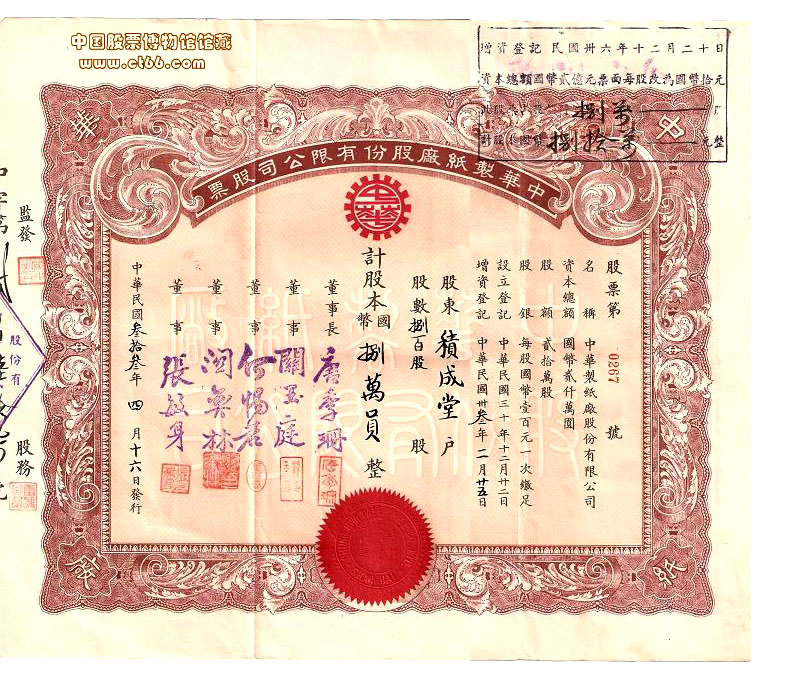 中国股票博物馆馆藏
www.ct66.com
增資登記 民國卅六年十二月二十日
資本總額國幣貳億元票面每股改為國幣拾元
捌萬
捌拾萬 元整
中華紙廠
中華製紙廠股份有限公司股票
股票第 0267 號
名稱 中華製紙廠股份有限公司
資本總額 國幣貳仟萬圓
股額 貳拾萬股
股銀 每股國幣壹百元一次繳足
設立登記 中華民國三十年十二月廿二日
增資登記 中華民國卅叁年二月廿五日
股東 積成堂 戶
股數 捌百股 股
計股本國幣 捌萬員 整
董事長 唐季珊
董事 關玉庭
董事 何惕若
董事
董事 張毅身
中華民國叁拾叁年四月十六日發行
監發
股務
股份有